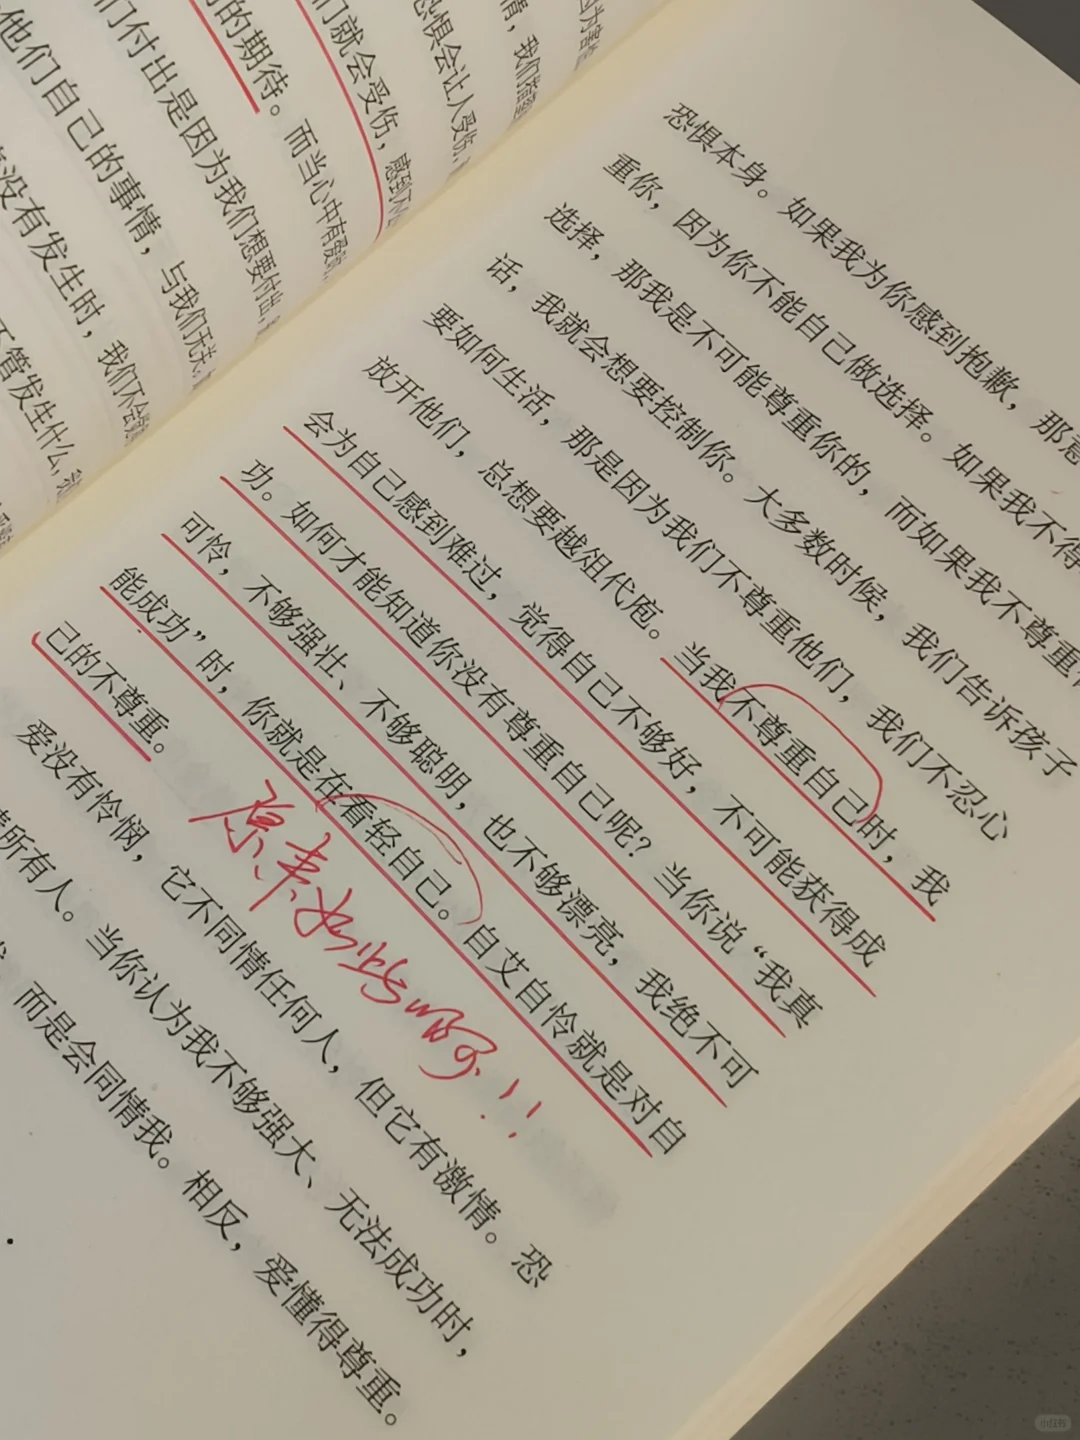 恐惧会让人受伤，
们就会受伤，感到不
的期待。而当心中有爱
们付出是因为我们想要付出，
他们自己的事情，与我们无关，
没有发生时，我们不会
不管发生什么，我
恐惧本身。如果我为你感到抱歉，那意
重你，因为你不能自己做选择。如果我不得
选择，那我是不可能尊重你的，而如果我不尊重
话，我就会想要控制你。大多数时候，我们告诉孩子
要如何生活，那是因为我们不尊重他们，我们不忍心
放开他们，总想要越俎代庖。当我不尊重自己时，我
会为自己感到难过，觉得自己不够好，不可能获得成
功。如何才能知道你没有尊重自己呢？当你说“我真
可怜，不够强壮、不够聪明，也不够漂亮，我绝不可
能成功”时，你就是在看轻自己。自艾自怜就是对自
己的不尊重。
原来如此啊！！
爱没有怜悯，它不同情任何人，但它有激情。恐
情所有人。当你认为我不够强大、无法成功时，
而是会同情我。相反，爱懂得尊重。
小红书